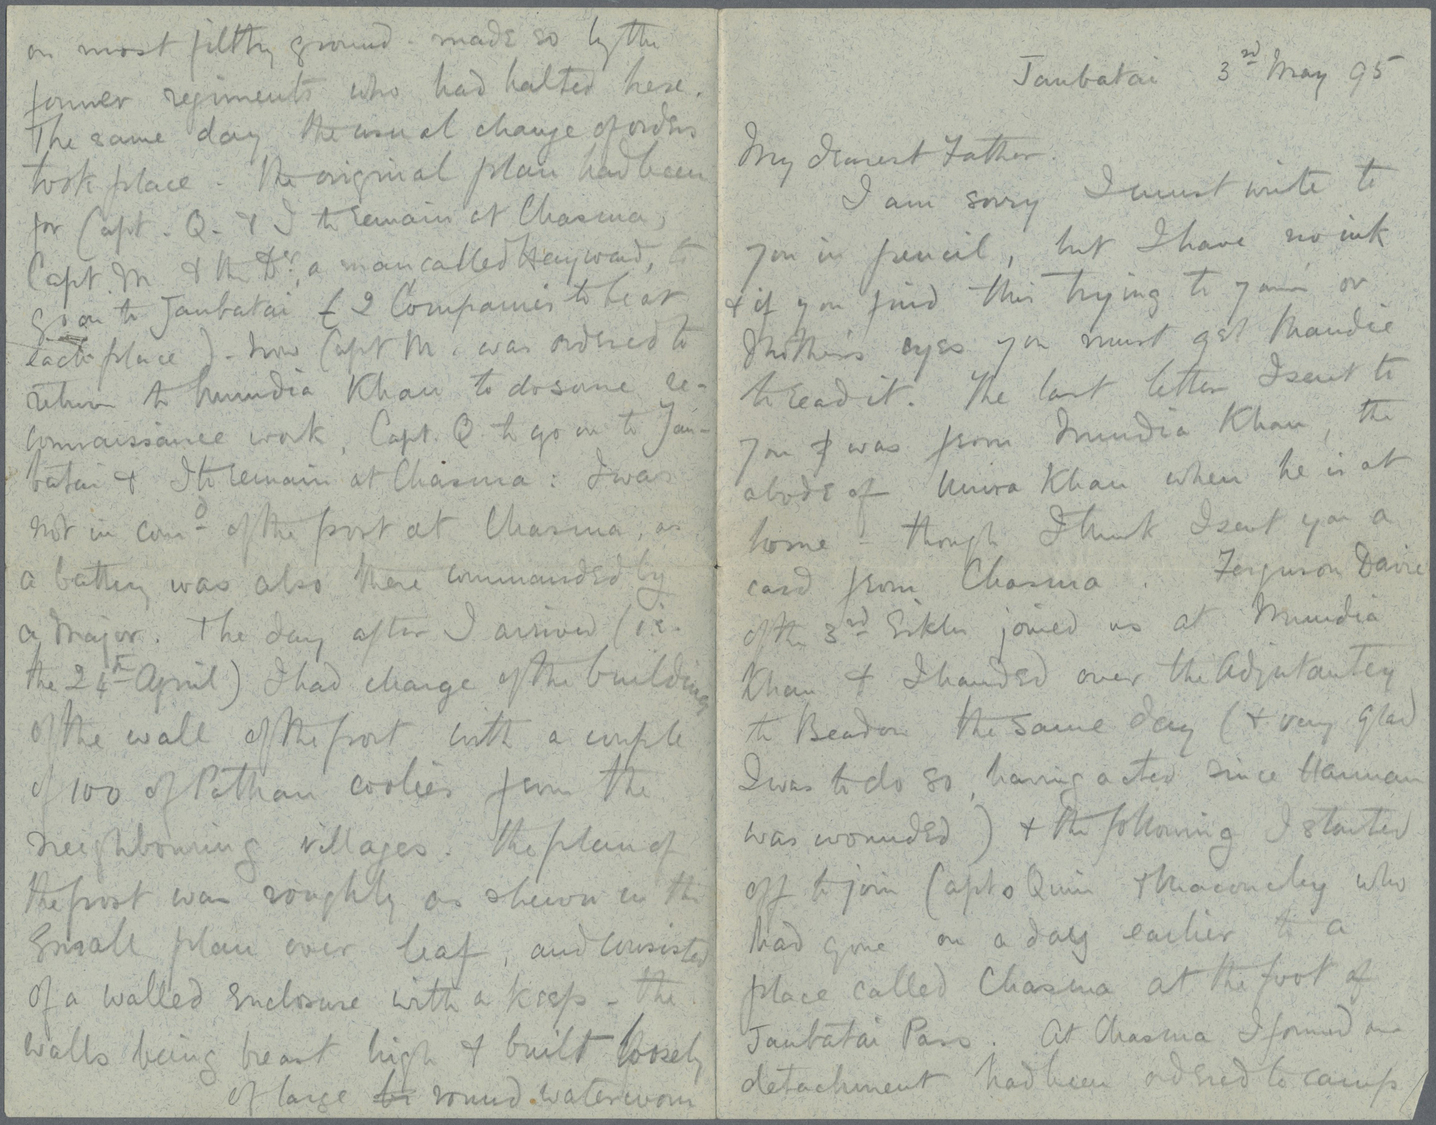 Janbatai 3rd May 95
My dearest Father.
I am sorry I must write to
you in pencil, but I have no ink
& if you find this trying to your or
Mother's eyes you must get Maudie
to read it. The last letter I sent to
you I was from Mundia Khan, the
abode of Umra Khan when he is at
home - though I think I sent you a
card from Chasma. Ferguson Davie
of the 3rd Sikhs joined us at Mundia
Khan & I handed over the Adjutantcy
to Beadon the same day (& very glad
I was to do so, having acted since Hannan
was wounded) & the following I started
off to join Capts Quin & Maconchy who
had gone on a day earlier to a
place called Chasma at the foot of
Janbatai Pass. At Chasma I found our
detachment had been ordered to camp
on most filthy ground - made so by the
former regiments who had halted here.
The same day the usual change of orders
took place - the original plan had been
for Capt. Q. & I to remain at Chasma,
Capt. M & the Dr, a man called Hayward, to
go on to Janbatai (2 Companies to be at
each place) - now Capt M. was ordered to
return to Mundia Khan to do some re-
connaissance work, Capt. Q to go on to Jan-
batai & I to remain at Chasma: I was
not in comd of the post at Chasma, as
a battery was also there commanded by
a Major. The day after I arrived (i.e.
the 24th April) I had charge of the building
of the wall of the post with a couple
of 100 of Pathan coolies from the
neighbouring villages. The plan of
the post was roughly as shewn in the
small plan over leaf, and consisted
of a walled enclosure with a keep - the
walls being breast high & built loosely
of large round waterworn